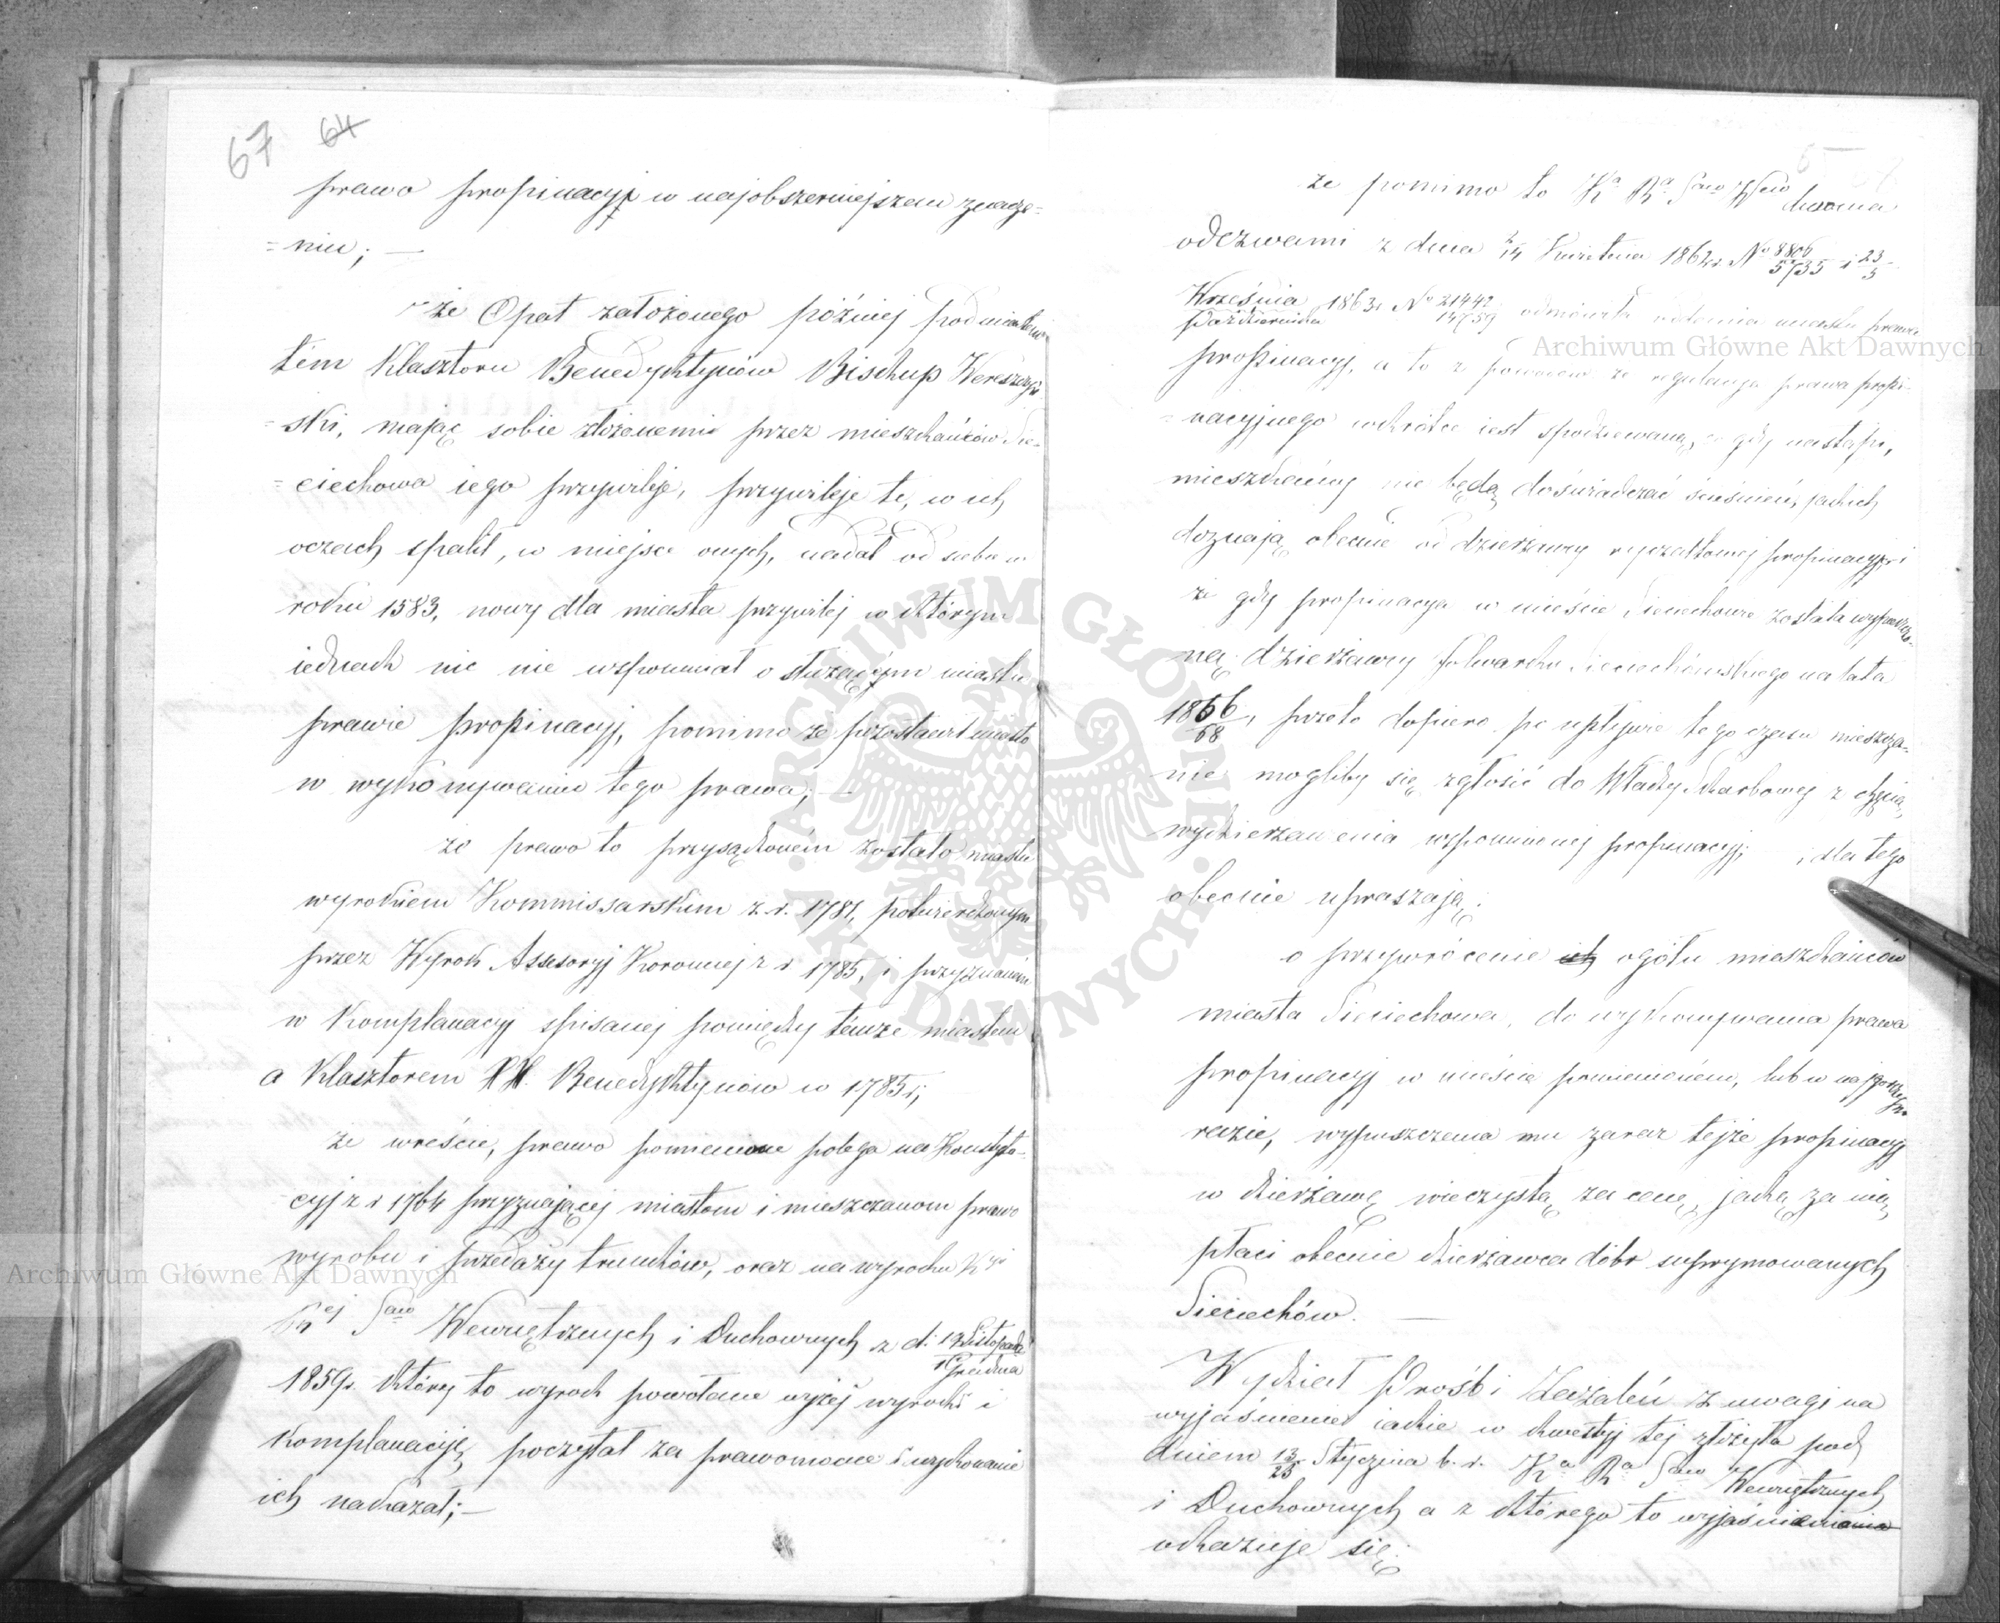 67 64
prawo propinacyi w najobszerniejszem znacze=
=niu; —
że Opat założonego później pod miastem
tém Klasztoru Benedyktynów Biskup Wereszczyń
=ski, mając sobie złożonemi przez mieszkańców Sie=
=ciechowa iego przywileje, przywileje te, w ich
oczach spalił, w miejsce onych, nadał od siebie w
roku 1583, nowy dla miasta przywilej w którym
iednak nic nie wspomniał o służącym miastu
prawie propinacyj, pomimo że pozostawił miasto
w wykonywaniu tego prawa; —
że prawo to przysądzoném zostało miastu
wyrokiem Kommissarskim z r. 1781, potwierdzonym
przez Wyrok Assesoryj Koronnej z r 1785, i przyznaném
w Komplanacyj spisanej pomiędzy témże miastem
a Klasztorem XX. Benedyktynów w 1785 r;
że wreście, prawo pomienione polega na Konstytu-
cyj z r 1764 przyznającej miastom i mieszczanom prawo
wyrobu i przedaży trunków, oraz na wyroku Kyi
Rej Saw Wewnętrznych i Duchownych z d: 19 Listopada
1 Grudnia
1859r. który to wyrok powołane wyżej wyroki i
Komplanacyję, poczytał za prawomocne i wykonanie
ich nakazał; —
że pomimo to Ka Ra Saw Wew
Duchowna
odezwami z dnia 2/14 Kwietnia 1862r. No 8806/5735 i 23/5
Września
Października 1863r No 21442/14759 odmówiła oddania miastu prawa
propinacyj, a to z powodów że regulacya prawa propi-
=nacyjnego wkrótce iest spodziewaną, a gdy nastąpi,
mieszkańcy nie będą doświadczać ścieśnień, jakich
doznają obecnie od dzierżawcy ryczałtowej propinacyj i
że gdy propinacya w mieście Sieciechowie została wypuszczo-
ną dzierżawcy folwarku Sieciechowskiego na lata
1866/68, przeto dopiero po upływie tego czasu mieszcza-
nie mogliby się zgłosić do Władzy Skarbowej z chęcią
wydzierżawienia wspomnionej propinacyj; i dla tego
obecnie upraszają:
o przywrócenie ich ogółu mieszkańców
miasta Sieciechowa, do wykonywania prawa
propinacyj w mieście pomienioném, lub w najgorszym
razie, wypuszczenia mu zaraz tejże propinacyj
w dzierżawę wieczystą za cenę, jaką za nią
płaci obecnie dzierżawca dóbr suprymowanych
Sieciechów. —
Wydział Próśb i Zażaleń z uwagi na
wyjaśnienie iakie w kwestyj tej złożyła pod
dniem 13/25 Stycznia b. r. Ka Ra Saw Wewnętrznych
i Duchownych a z którego to wyjaśnienia
okazuje się:
Archiwum Główne Akt Dawnych
Archiwum Główne Akt Dawnych
ARCHIWUM GŁÓWNE AKT DAWNYCH